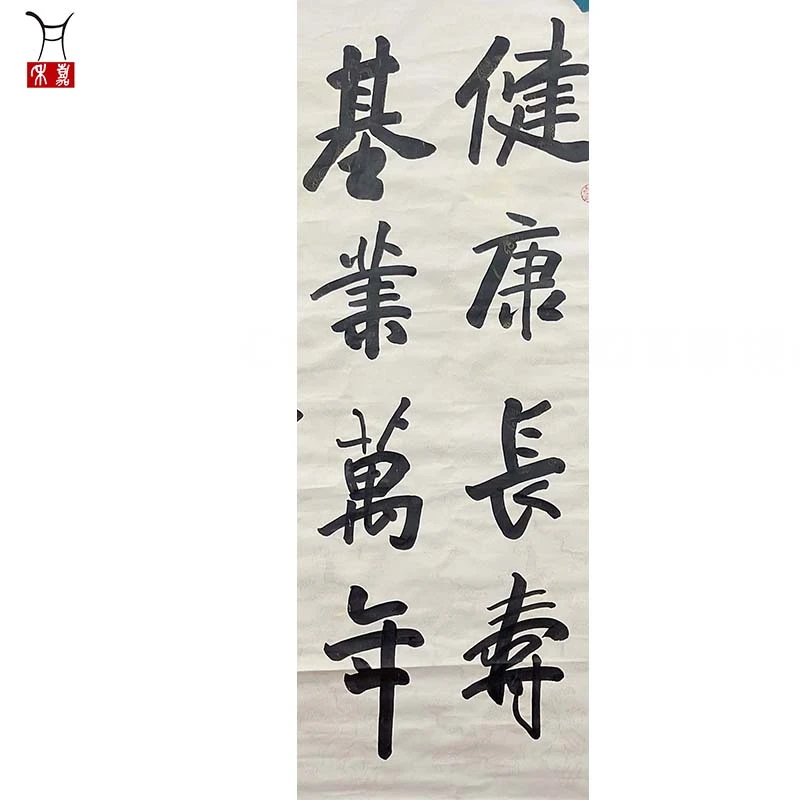 健康長壽
基業萬年
禾嘉